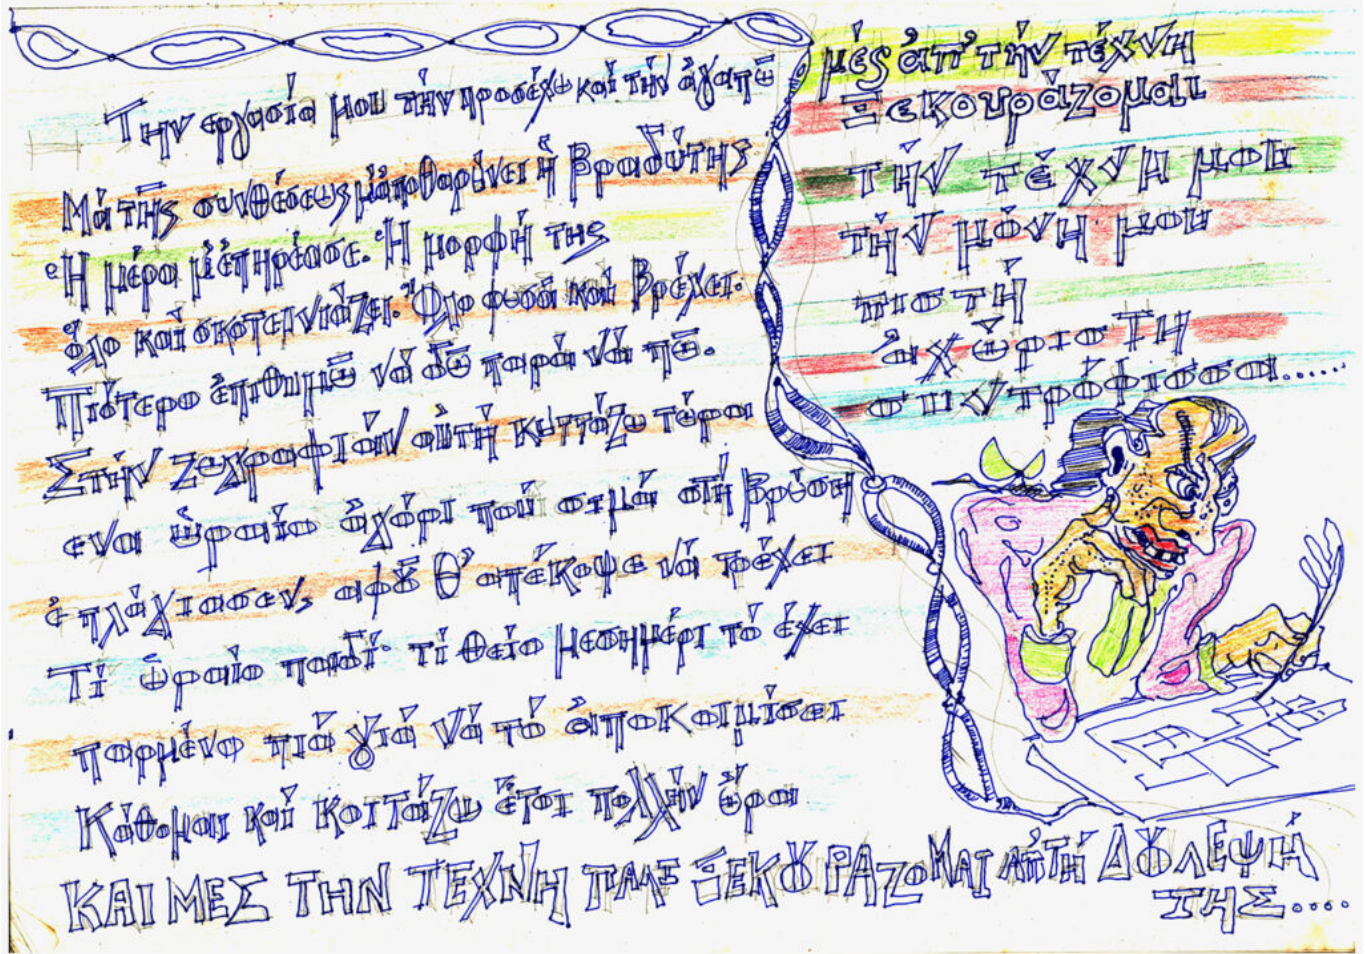 Την εργασία μου την προσέχω και την άγαπῶ
Μά τῆς συνθέσεως μ'ἀποθαρύνει ἡ βραδύτης.
Ἡ μέρα μ'ἐπηρέασε. Ἡ μορφή της
ὁλο καί σκοτεινιάζει. Ὅλο φυσά καί βρέχει.
Πιότερο ἐπιθυμῶ νά δῶ παρά νά πῶ.
Στήν ζωγραφιάν αὐτή κυττάζω τώρα
ενα ὡραίο ἀγόρι πού σιμά στή βρύση
ἐπλάγιασεν, αφȣ θ' απέκαψε νά τρέχει
Τί ὡραίο παιδί· τί θείο μεσημέρι τό έχει
παρμένο πιά γιά νά τό ἀποκοιμίσει
Κάθομαι καί κοιτάζω ἔτσι πολλήν ὥρα
ΚΑΙ ΜΕΣ ΤΗΝ ΤΕΧΝΗ ΠΑΛΙ ΞΕΚȢΡΑΖΟΜΑΙ ΑΠ'ΤΗ ΔȢΛΕΨΗ
ΤΗΣ....
μές ἀπ' τήν τέχνη
Ξεκουράζομαι
τήν τέχνη μου
τήν μόνη μου
πιστή
ἀχώριστη
συντρόφισσα......